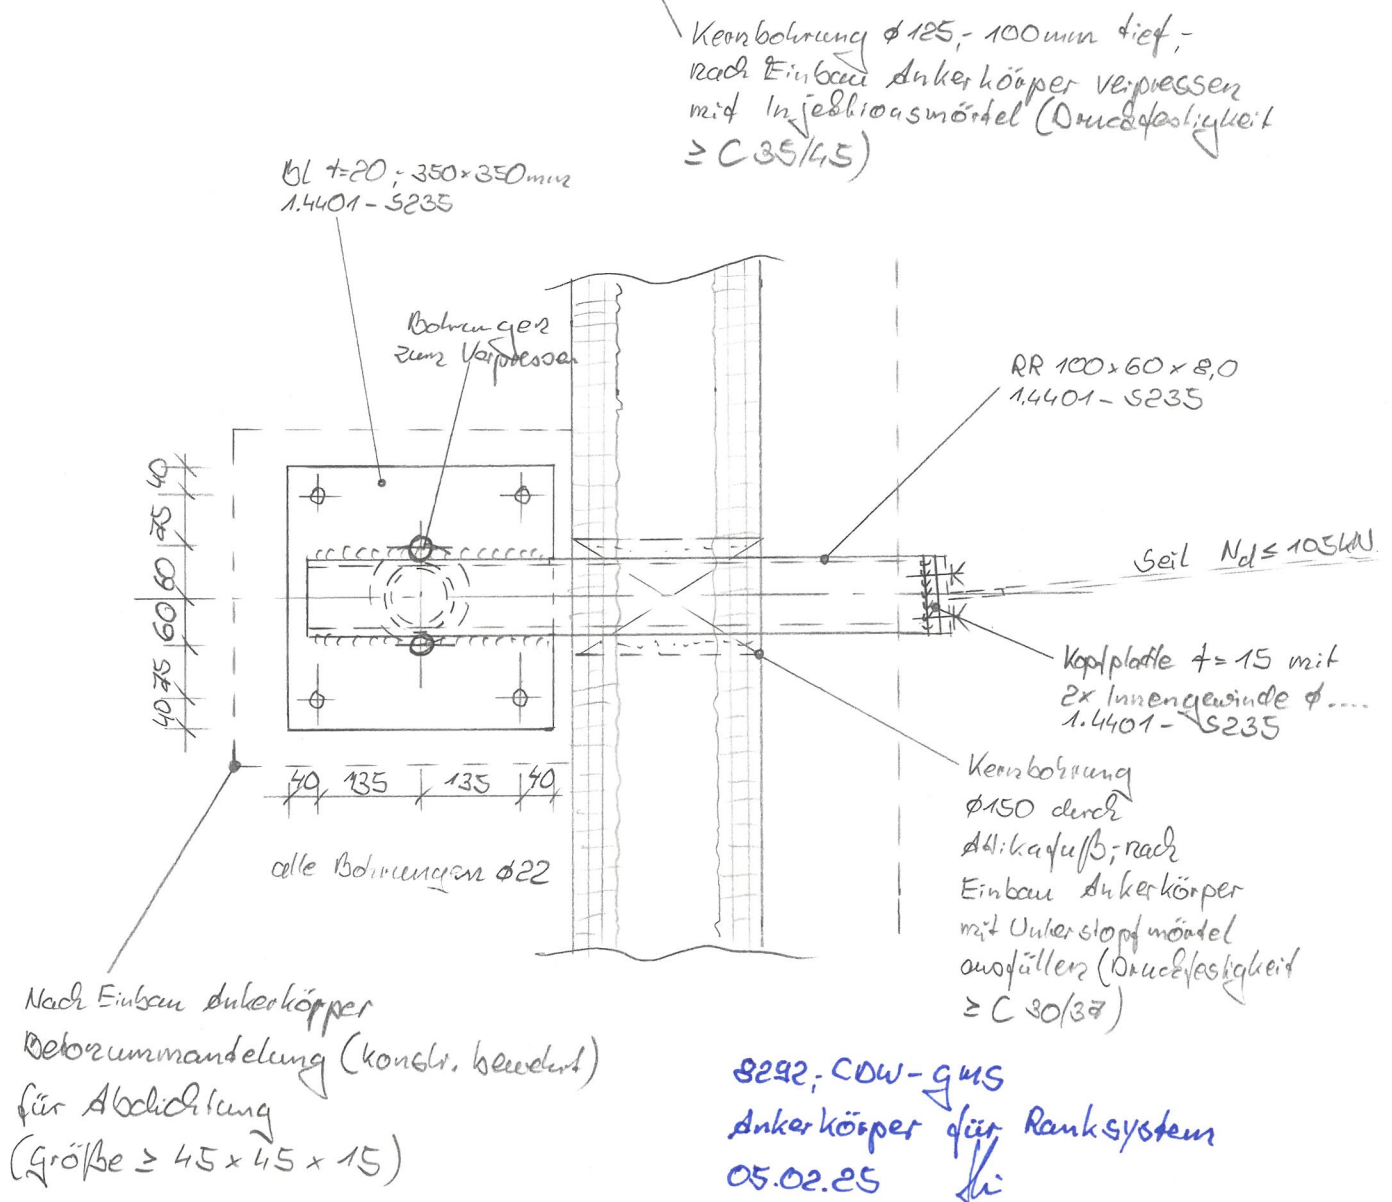 Kernbohrung ø125,- 100mm tief,-
nach Einbau Ankerkörper verpressen
mit Injektionsmörtel (Druckfestigkeit
≥ C 35/45)
BL t=20 ; 350×350mm
1.4401 - S235
Bohrungen
zum Verpressen
RR 100×60×8,0
1.4401 - S235
40
75
60
60
75
40
Seil Nd ≤ 105kN
Kopfplatte t=15 mit
2x Innengewinde ø....
1.4401 - S235
40 135 135 40
alle Bohrungen ø22
Kernbohrung
ø150 durch
Attikafuß; nach
Einbau Ankerkörper
mit Unterstopfmörtel
ausfüllen (Druckfestigkeit
≥ C 30/37)
Nach Einbau Ankerkörper
Betonummantelung (konstr. bewehrt)
für Abdichtung
(Größe ≥ 45 × 45 × 15)
8292; CDW-GMS
Ankerkörper für Ranksystem
05.02.25